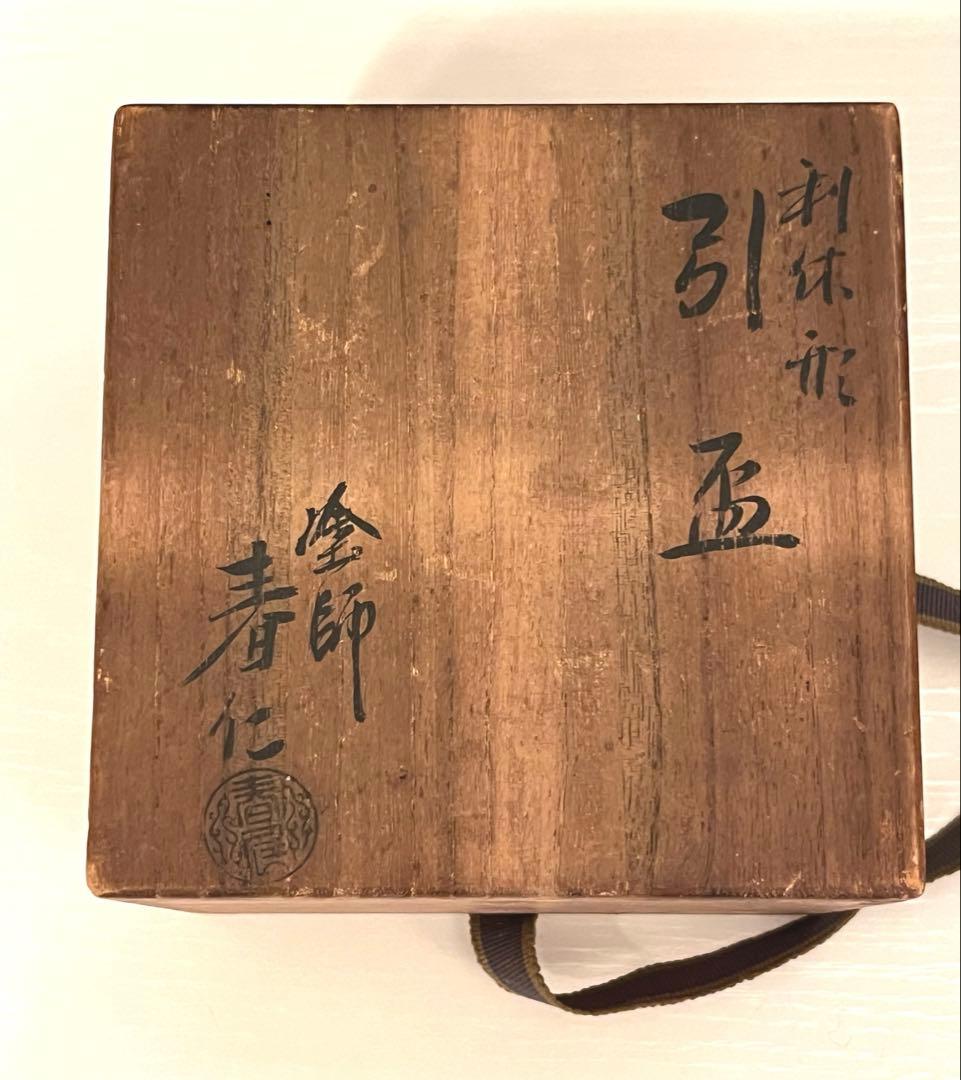 利休形
引盃
塗師
春仁